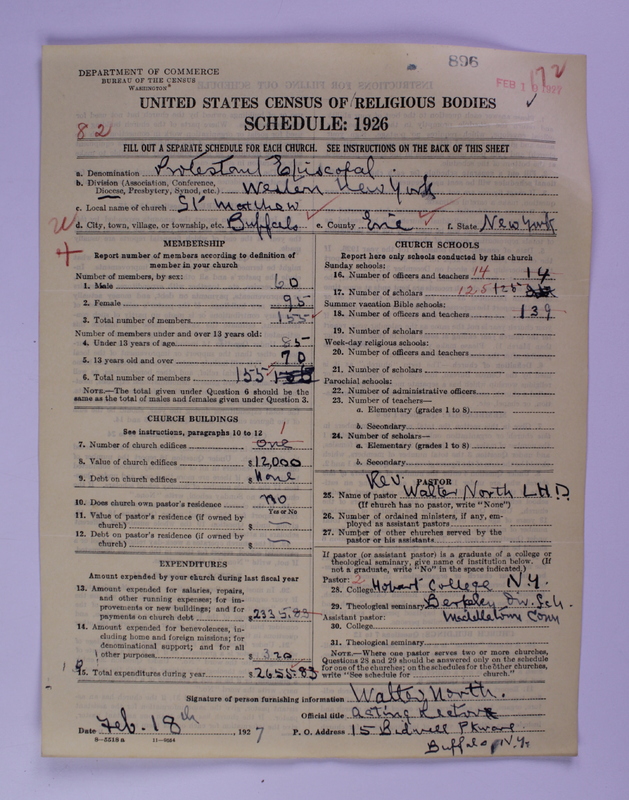 896
172
FEB 1 9 1927
DEPARTMENT OF COMMERCE
BUREAU OF THE CENSUS
WASHINGTON
UNITED STATES CENSUS OF RELIGIOUS BODIES
SCHEDULE: 1926
82
FILL OUT A SEPARATE SCHEDULE FOR EACH CHURCH. SEE INSTRUCTIONS ON THE BACK OF THIS SHEET
a. Denomination Protestant Episcopal
b. Division (Association, Conference,
Diocese, Presbytery, Synod, etc.) Western New York
c. Local name of church St Matthew
d. City, town, village, or township, etc. Buffalo e. County Erie f. State New York
MEMBERSHIP
Report number of members according to definition of
member in your church
Number of members, by sex:
1. Male 60
2. Female 95
3. Total number of members 155
Number of members under and over 13 years old:
4. Under 13 years of age 85
5. 13 years old and over 70
6. Total number of members 155
NOTE.—The total given under Question 6 should be the
same as the total of males and females given under Question 3.
CHURCH BUILDINGS
See instructions, paragraphs 10 to 12
7. Number of church edifices one 1
8. Value of church edifices $12,000
9. Debt on church edifices $ None
10. Does church own pastor's residence no
Yes or No
11. Value of pastor's residence (if owned by
church) $ —
12. Debt on pastor's residence (if owned by
church) $ —
EXPENDITURES
Amount expended by your church during last fiscal year
13. Amount expended for salaries, repairs,
and other running expenses; for im-
provements or new buildings; and for
payments on church debt $2335.83
14. Amount expended for benevolences, in-
cluding home and foreign missions; for
denominational support; and for all
other purposes $ 320
15. Total expenditures during year $2655.83
CHURCH SCHOOLS
Report here only schools conducted by this church
Sunday schools:
16. Number of officers and teachers 14 14
17. Number of scholars 125 125
Summer vacation Bible schools:
18. Number of officers and teachers 139
19. Number of scholars
Week-day religious schools:
20. Number of officers and teachers
21. Number of scholars
Parochial schools:
22. Number of administrative officers
23. Number of teachers—
a. Elementary (grades 1 to 8)
b. Secondary
24. Number of scholars—
a. Elementary (grades 1 to 8)
b. Secondary
PASTOR
25. Name of pastor Rev. Walter North L.H.D.
(If church has no pastor, write "None")
26. Number of ordained ministers, if any, em-
ployed as assistant pastors
27. Number of other churches served by the
pastor or his assistants
If pastor (or assistant pastor) is a graduate of a college or
theological seminary, give name of institution below. (If
not a graduate, write "No" in the space indicated.)
Pastor: 2
28. College Hobart College N.Y.
29. Theological seminary Berkeley Div. Sch.
Assistant pastor: Middletown Conn
30. College
31. Theological seminary
NOTE.—Where one pastor serves two or more churches,
Questions 28 and 29 should be answered only on the schedule
for one of the churches; on the schedules for the other churches,
write "See schedule for church."
Signature of person furnishing information Walter North.
Official title Acting Rector
Date Feb. 18th, 1927 P. O. Address 15 Bidwell Pkway
Buffalo N.Y.
8-5518a 11-9584